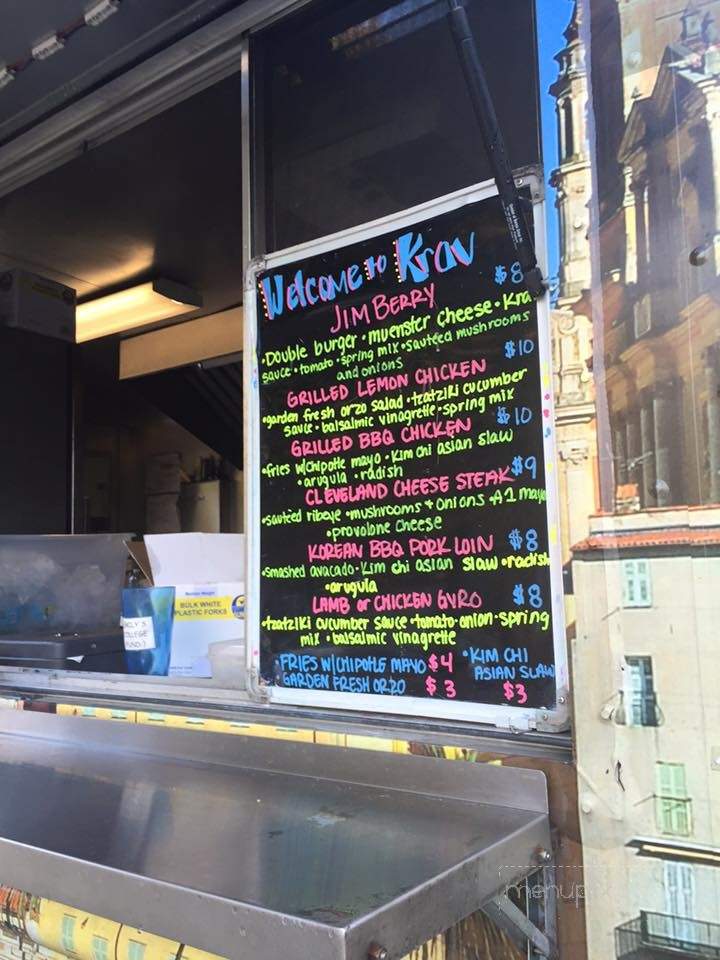 Welcome to Krav
$8
JIM BERRY
•Double burger • muenster cheese • Kra
sauce • tomato • spring mix • sautéed mushrooms
and onions
$10
GRILLED LEMON CHICKEN
•garden fresh orzo salad • tzatziki cucumber
sauce • balsalmic vinagrette • spring mix
GRILLED BBQ CHICKEN
$10
•fries w/chipotle mayo • Kim chi asian slaw
•arugula •radish
CLEVELAND CHEESE STEAK $9
•sautéed ribeye •mushrooms + onions •A1 mayo
•provolone cheese
KOREAN BBQ PORK LOIN $8
•smashed avocado • Kim chi asian slaw •radish
•arugula
LAMB or CHICKEN GYRO $8
•tzatziki cucumber sauce •tomato•onion•spring
mix •balsalmic vinagrette
•FRIES W/CHIPOTLE MAYO $4
GARDEN FRESH ORZO $3
•KIM CHI
ASIAN SLAW
$3
BULK WHITE
PLASTIC FORKS
LY'S
OLLEGE
FUND :)
menup